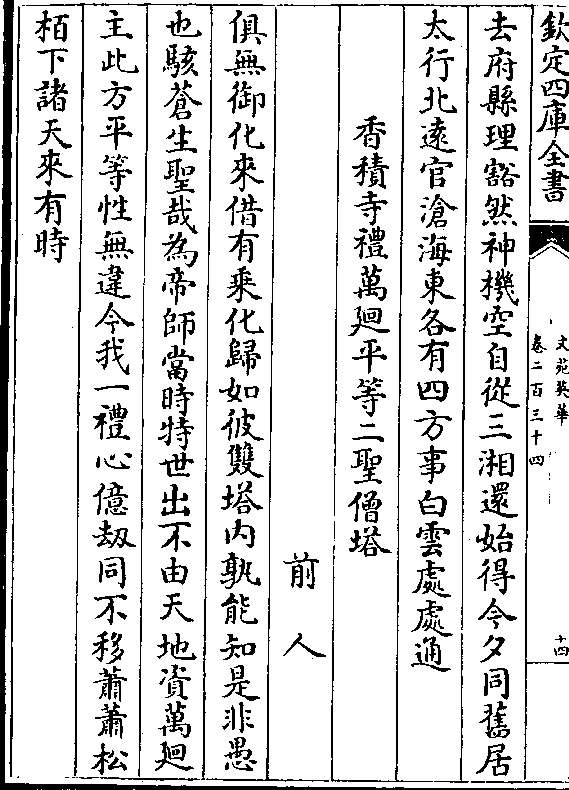 欽定四庫全書
文苑英華
卷二百三十四
十四
去府縣理豁然神機空自從三湘還始得今夕同舊居
太行北遠官滄海東各有四方事白雲處處通
香積寺禮萬廻平等二聖僧塔
前人
俱無御化來借有乘化歸如彼雙塔內孰能知是非愚
也駭蒼生聖哉為帝師當時特世出不由天地資萬廻
主此方平等性無違今我一禮心億刼同不移蕭蕭松
栢下諸天來有時